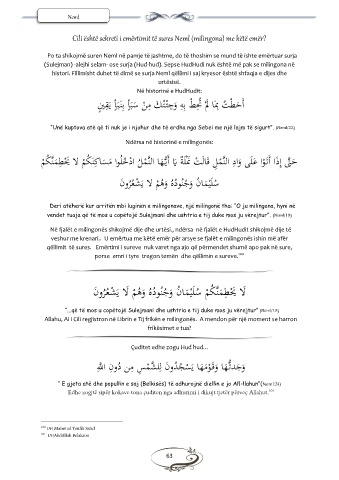 Neml
Cili është sekreti i emërtimit të sures Neml (milingona) me këtë emër?
Po ta shikojmë suren Neml në pamje të jashtme, do të thoshim se mund të ishte emërtuar surja
(Sulejman) -alejhi selam- ose surja (Hud hud). Sepse HudHudi nuk është më pak se milingona në
histori. Fillimisht duhet të dimë se surja Neml qëllimi i saj kryesor është shfaqja e dijes dhe
urtësisë.
Në historinë e HudHudit:
أَحَطْتُ بِمَا لَمْ تُحِطْ بِهِ وَجِئْتُكَ مِنْ سَبَإٍ بِنَبَإٍ يَقِينٍ
"Unë kuptova atë që ti nuk je i njohur dhe të erdha nga Sebei me një lajm të sigurt". (Neml:22)
Ndërsa në historinë e milingonës:
حَتَّى إِذَا أَتَوْا عَلَى وَادِ النَّمْلِ قَالَتْ نَمْلَةٌ يَا أَيُّهَا النَّمْلُ ادْخُلُوا مَسَاكِنَكُمْ لَا يَحْطِمَنَّكُمْ
سُلَيْمَانُ وَجُنُودُهُ وَهُمْ لَا يَشْعُرُونَ
Deri atëherë kur arritën mbi luginën e milingonave, një milingonë tha: "O ju milingona, hyni në
vendet tuaja që të mos u copëtojë Sulejmani dhe ushtria e tij duke mos ju vërejtur". (Neml:18)
Në fjalët e milingonës shikojmë dije dhe urtësi., ndërsa në fjalët e HudHudit shikojmë dije të
veshur me krenari,. U emërtua me këtë emër për arsye se fjalët e milingonës ishin më afër
qëllimit të sures. Emërtimi i sureve nuk varet nga ajo që përmendet shumë apo pak në sure,
porse emri i tyre tregon temën dhe qëllimin e sureve.
لَا يَحْطِمَنَّكُمْ سُلَيْمَانُ وَجُنُودُهُ وَهُمْ لَا يَشْعُرُونَ
"...që të mos u copëtojë Sulejmani dhe ushtria e tij duke mos ju vërejtur" (Neml:18)
Allahu, Ai i Cili regjistron në Librin e Tij frikën e milingonës. A mendon për një moment se harron
frikësimet e tua?
Çuditet edhe zogu Hud hud...
وَجَدْتُهَا وَقَوْمَهَا يَسْجُدُونَ لِلشَّمْسِ مِن دُونِ اللَّهِ
"E gjeta atë dhe popullin e saj (Belkisës) të adhurojnë diellin e jo All-llahun"(Neml:24)
63